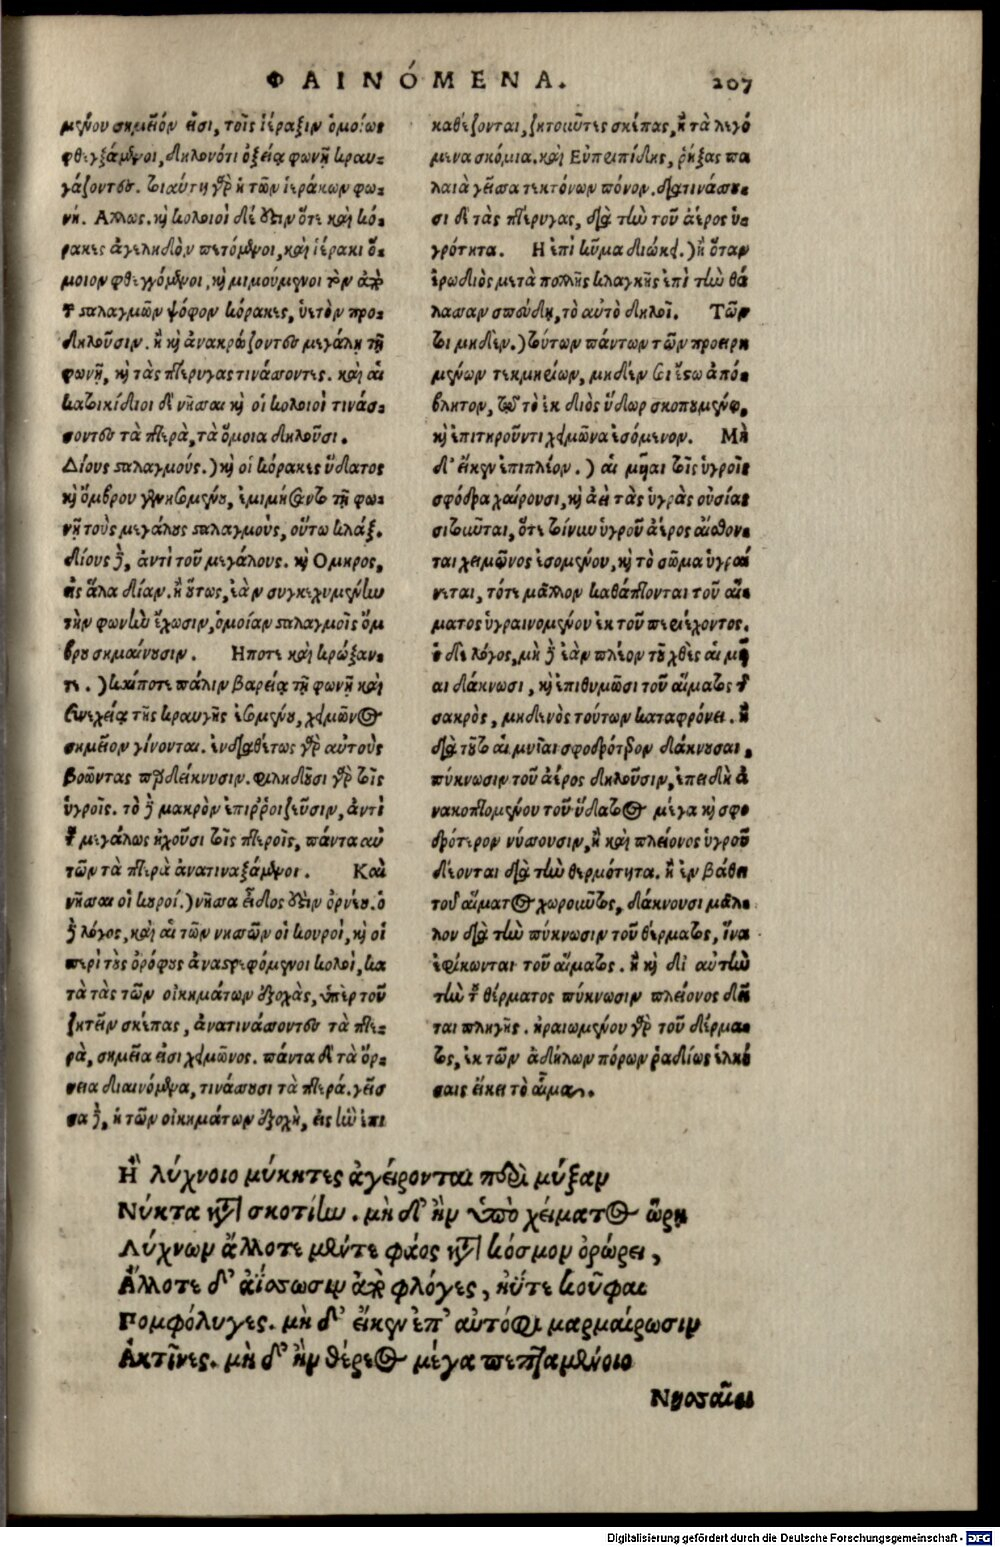 ΦΑΙΝΌΜΕΝΑ. 207
μένου σημεῖόν εἰσι, τοῖς ἱέραξιν ὁμοίως
φθεγξάμενοι, δηλονότι ὀξείᾳ φωνῇ κραυ-
γάζοντες. τοιαύτη γὰρ ἡ τῶν ἱεράκων φω-
νή. Ἄλλως. καὶ κολοιοὶ δέ εἰσιν ὅτε καὶ κό-
ρακες ἀγεληδὸν πετόμενοι, καὶ ἱέρακι ὅ-
μοιον φθεγγόμενοι, καὶ μιμούμενοι τὸν ἀπὸ
τ σταλαγμῶν ψόφον κόρακες, ὑετὸν προ-
δηλοῦσιν. ἢ καὶ ἀνακράζοντες μεγάλῃ τῇ
φωνῇ, καὶ τὰς πτέρυγας τινάσσοντες. καὶ αἱ
κατοικίδιοι δὲ νῆσσαι καὶ οἱ κολοιοὶ τινάσ-
σοντες τὰ πτερὰ, τὰ ὅμοια δηλοῦσι.
Δίους σταλαγμούς.) καὶ οἱ κόρακες ὕδατος
καὶ ὄμβρου γενησομένου, ἐμιμήσαντο τῇ φω-
νῇ τοὺς μεγάλους σταλαγμοὺς, οὕτω κλάξ.
δίους δὲ, ἀντὶ τοῦ μεγάλους. καὶ Ὅμηρος,
εἰς ἅλα δῖαν. ἢ οὕτως, ἐὰν συγκεχυμένην
τὴν φωνὴν ἔχωσιν, ὁμοίαν σταλαγμοῖς ὄμ
βρου σημαίνουσιν. Ἤποτε καὶ κρώξαν-
τε.) κᾀποτε πάλιν βαρείᾳ τῇ φωνῇ καὶ
συνεχείᾳ τῆς κραυγῆς ἐσομένου, χειμῶνος
σημεῖον γίνονται. ἐνδιαθέτως γὰρ αὐτοὺς
βοῶντας παραδείκνυσιν. φιληδοῦσι γὰρ τοῖς
ὑγροῖς. τὸ δὲ μακρὸν ἐπιῤῥοιζεῦσιν, ἀντὶ
τ μεγάλως ἠχοῦσι τοῖς πτεροῖς, πάντα αὐ
τῶν τὰ πτερὰ ἀνατιναξάμενοι. Καὶ
νῆσσαι οἰκουροί.) νῆσσα εἶδος ἐστιν ὀρνέου. ὁ
δὲ λόγος, καὶ αἱ τῶν νησσῶν οἰκουροὶ, καὶ οἱ
περὶ τοὺς ὀρόφους ἀναστρεφόμενοι κολοιοὶ, κα
τὰ τὰς τῶν οἰκημάτων ἐξοχὰς, ὑπὲρ τοῦ
ζητεῖν σκέπας, ἀνατινάσσοντες τὰ πτε-
ρὰ, σημεῖα εἰσι χειμῶνος. πάντα δὲ τὰ ὄρ-
νεα διαινόμενα, τινάσσουσι τὰ πτερά. γεῖσ
σα δὲ, ἡ τῶν οἰκημάτων ἐξοχὴ, εἰς ἣν ἐπι
καθέζονται, ζητοῦντες σκέπας, ἢ τὰ λεγό
μενα σκόμια. καὶ Εὐριπίδης, ῥήξας πα
λαιὰ γεῖσσα τεκτόνων πόνον. διατινάσσου-
σι δὲ τὰς πτέρυγας, διὰ τὴν τοῦ ἀέρος ὑ-
γρότητα. Ἢ ἐπὶ κῦμα διώκει.) ἢ ὅταν
ἐρωδιὸς μετὰ πολλῆς κλαγγῆς ἐπὶ τὴν θά
λασσαν σπεύδῃ, τὸ αὐτὸ δηλοῖ. Τῶν
τοι μηδέν.) τούτων πάντων τῶν προειρη
μένων τεκμηρίων, μηδέν σοι ἔστω ἀπό-
βλητον, τῷ τὸ ἐκ διὸς ὕδωρ σκοπουμένῳ,
καὶ ἐπιτηροῦντι χειμῶνα ἐσόμενον. Μὴ
δ' εἴκεν ἐπιπλέον.) αἱ μυῖαι τοῖς ὑγροῖς
σφόδρα χαίρουσι, καὶ ἀεὶ τὰς ὑγρὰς οὐσίας
σιτοῦνται, ὅτε τοίνυν ὑγροῦ ἀέρος αἴσθον-
ται χειμῶνος ἐσομένου, καὶ τὸ σῶμα ὑγραί
νεται, τότε μᾶλλον καθάπτονται τοῦ αἵ-
ματος ὑγραινομένου ἐκ τοῦ περιέχοντος.
ὁ δὲ λόγος, μὴ δὲ ἐὰν πλέον τοῦ χθὲς αἱ μυῖ
αι δάκνωσι, καὶ ἐπιθυμῶσι τοῦ αἵματος τ
σακρὸς, μηδενὸς τούτων καταφρόνει. ἢ
διὰ τοῦτο αἱ μυῖαι σφοδρότερον δάκνουσαι,
πύκνωσιν τοῦ ἀέρος δηλοῦσιν, ἐπειδὴ ἀ
νακοπτομένου τοῦ ὕδατος μέγα καὶ σφο
δρότερον νύσσουσιν, ἢ καὶ πλείονος ὑγροῦ
δέονται διὰ τὴν θερμότητα. ἢ ἐν βάθει
τοῦ αἵματος χωροῦντος, δάκνουσι μᾶλ-
λον διὰ τὴν πύκνωσιν τοῦ δέρματος, ἵνα
ἐφίκωνται τοῦ αἵματος. ἢ καὶ δι αὐτὴν
τὴν τ δέρματος πύκνωσιν πλείονος δεῖ
ται πληγῆς. ἠραιωμένου γὰρ τοῦ δέρμα-
τος, ἐκ τῶν ἀδήλων πόρων ῥαδίως ἑλκύ
σαις ἥκει τὸ αἷμα.
Ἢ λύχνοιο μύκητες ἀγείρονται περὶ μύξαν
Νύκτα κατὰ σκοτίην. μὴ δ' ἢν ὑπὸ χείματος ὥρῃ
Λύχνων ἄλλοτε μέν τε φάος κατὰ κόσμον ὀρώρει,
Ἄλλοτε δ' ἀΐσσωσιν ἀπὸ φλόγες, ἠΰτε κοῦφαι
Πομφόλυγες. μὴ δ' εἴκεν ἐπ' αὐτόφι μαρμαίρωσιν
Ἀκτῖνες. μὴ δ' ἢν θέρεος μέγα πεπταμένοιο
Νησσαῖοι
Digitalisierung gefördert durch die Deutsche Forschungsgemeinschaft - DFG